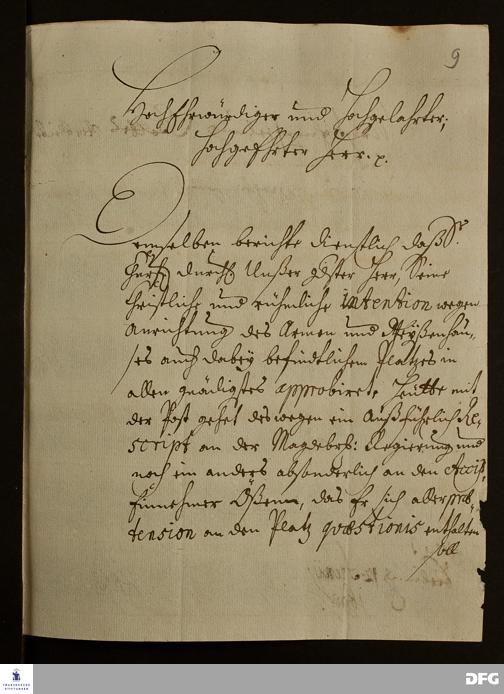 9
HochEhrwürdiger und Hochgelahrter,
Hochgeehrter Herr. p.
Demselben berichte dienstlich daß Sr.
Churf. Durchl. Unßer Gster Herr, Seine
Christliche und rühmliche intention wegen
Anrichtung des Armen und Weyßenhau-
ses auch dabey befindlichem Platzes in
allen gnädigstes approbiret, Heutte mit
der Post gehet deswegen ein Außführlich Re-
script an der Magdebrb: Regierung und
noch ein anders absonderlich an den Accis-
Einnehmer, das Er sich aller præ-
tension an den Platz quæstionis enthalten
soll
FRANCKESCHE STIFTUNGEN
DFG